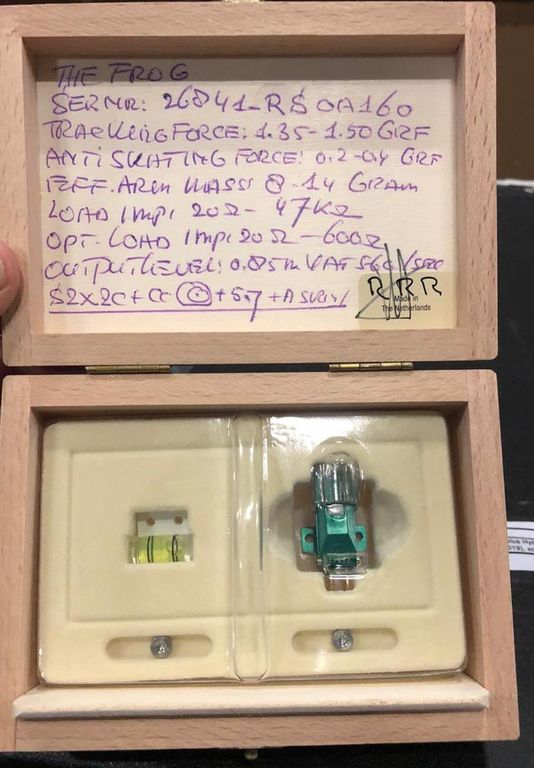 THE FROG
SERNR: 26841-RS OA160
TRACKING FORCE: 1.35-1.50 GRF
ANTI SKATING FORCE: 0.2-0.4 GRF
EFF. ARM MASS 8-14 GRAM
LOAD IMP: 20Ω- 47KΩ
OPT. LOAD IMP: 20Ω-600Ω
OUTPUT LEVEL: 0.85m V AT 5 /sec
S2x2c+
Made in
The Netherlands